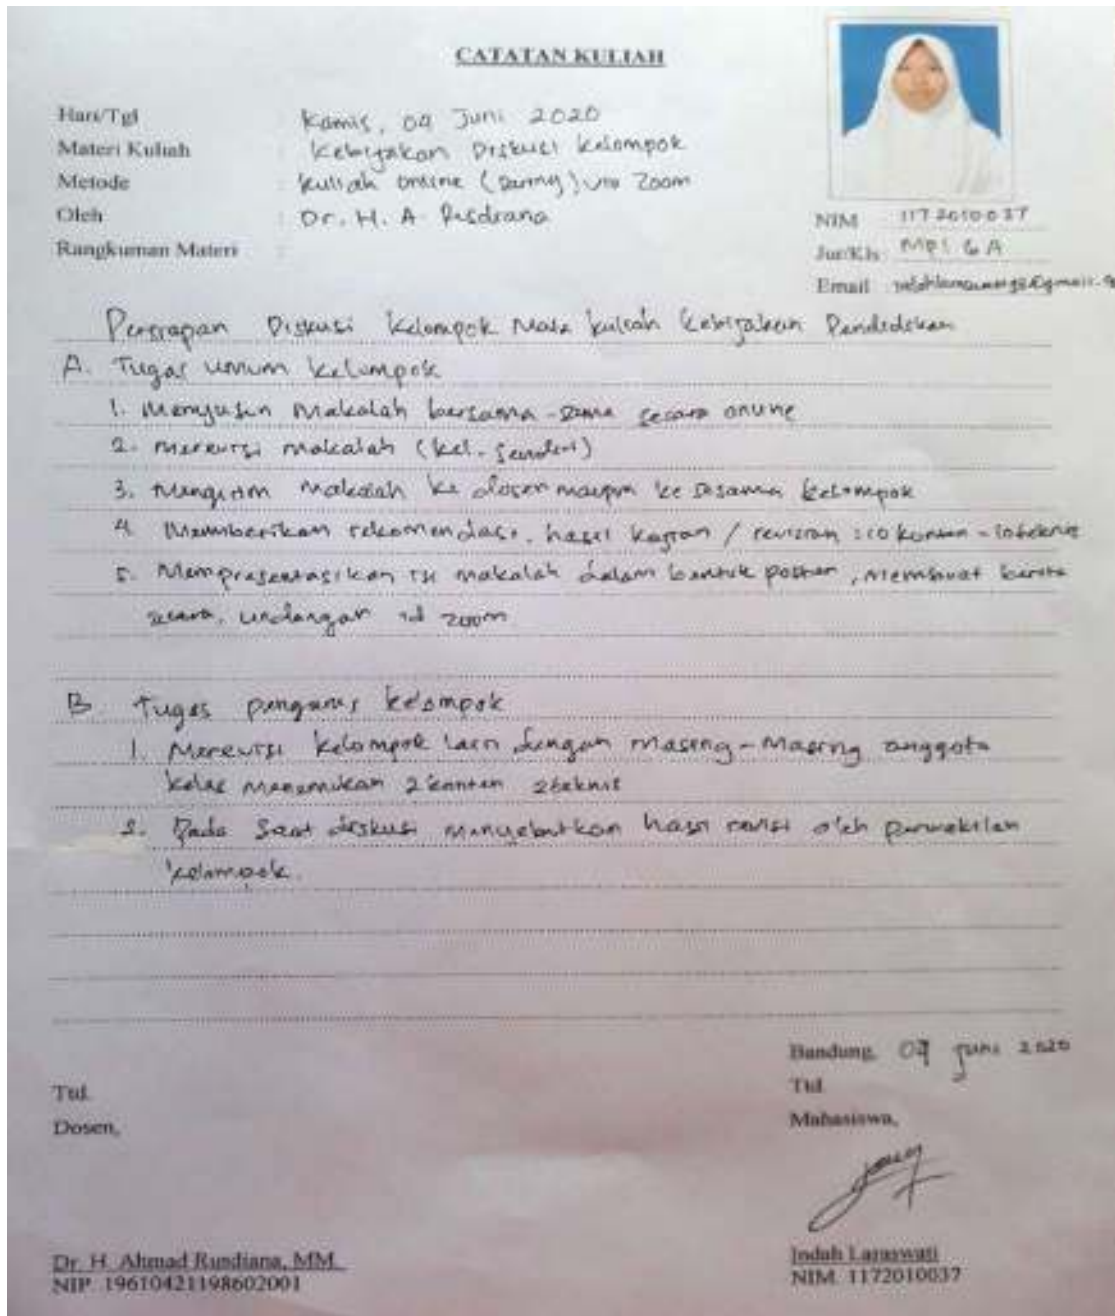 CATATAN KULIAH
Hari/Tgl Kamis, 04 Juni 2020
Materi Kuliah : Kebijakan Diskusi Kelompok
Metode : Kuliah online (Daring) via Zoom
Oleh : Dr. H. A. Rusdiana
Rangkuman Materi :
NIM 1172010037
Jur/Kls MPI 6 A
Email
Persiapan Diskusi Kelompok Mata kuliah Kebijakan Pendidikan
A. Tugas umum kelompok
1. Menyusun Makalah bersama-sama secara online
2. merevisi makalah (kel. sendiri)
3. Mengirim Makalah ke dosen maupun ke sesama kelompok
4 Memberikan rekomendasi, hasil kajian / revisian : 10 konten - 10 teknis
5. Mempresentasikan isi makalah dalam bentuk poster, membuat berita
acara, undangan id zoom
B. Tugas pengurus kelompok
1. Merevisi kelompok lain dengan masing-masing anggota
kelas menemukan 2 konten 2 teknis
2. Pada saat diskusi menyebutkan hasil revisi oleh perwakilan
kelompok.
Bandung, 04 Juni 2020
Ttd.
Ttd
Dosen,
Mahasiswa,
Dr. H. Ahmad Rusdiana, MM.
NIP. 19610421198602001
Indah Laraswati
NIM. 1172010037